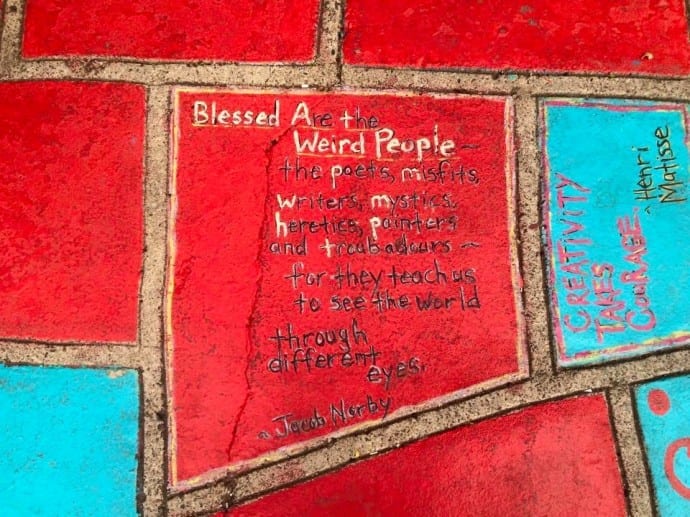 Blessed Are the
Weird People —
the poets, misfits,
writers, mystics,
heretics, painters
and troubadours —
for they teach us
to see the world
through
different
eyes.
~ Jacob Norby
CREATIVITY
TAKES
COURAGE.
~ Henri
Matisse